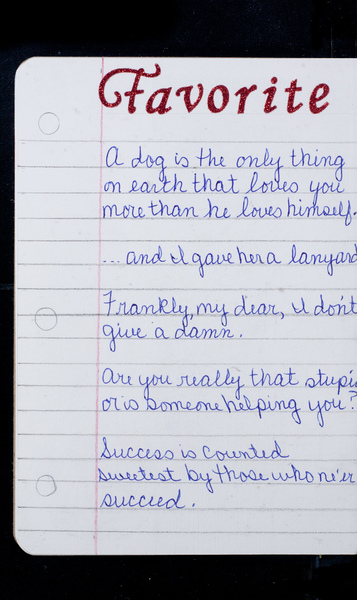 Favorite
A dog is the only thing
on earth that loves you
more than he loves himself.
... and I gave her a lanyard
Frankly, my dear, I don't
give a damn.
Are you really that stupi
or is someone helping you?
Success is counted
sweetest by those who ne'er
succeed.